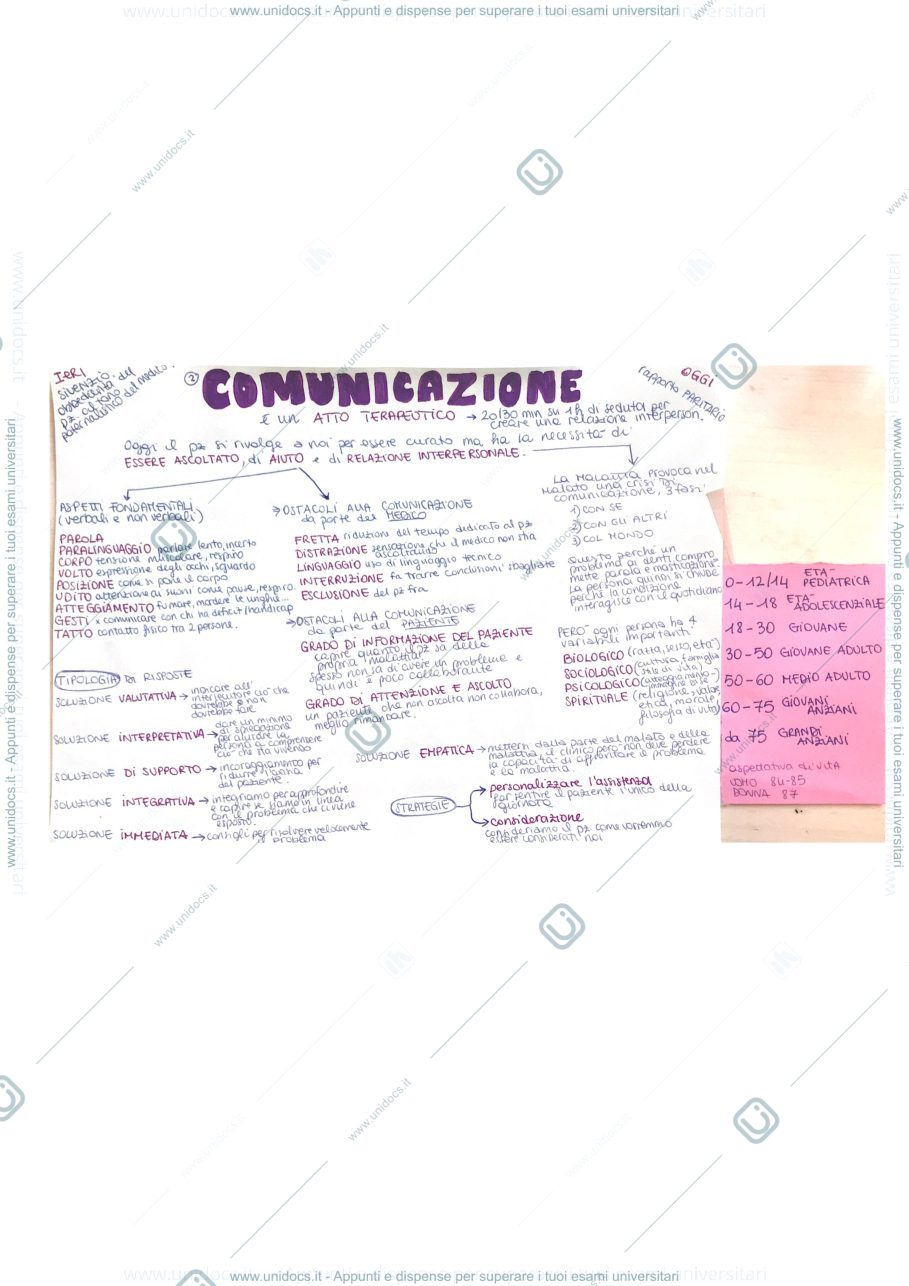 www.unidocs.it - Appunti e dispense per superare i tuoi esami universitari
IERI
SILENZIO.
obbedienza del
pz al tono
paternalistico del medico.
② COMUNICAZIONE
OGGI
rapporto PARITARIO
è un ATTO TERAPEUTICO → 20/30 min su 1h di seduta per
creare una relazione interperson.
Oggi il pz si rivolge a noi per essere curato ma ha la necessità di
ESSERE ASCOLTATO, di AIUTO e di RELAZIONE INTERPERSONALE.
ASPETTI FONDAMENTALI
(verbali e non verbali)
PAROLA
PARALINGUAGGIO parlare lento, incerto
CORPO tensione muscolare, respiro
VOLTO espressione degli occhi, sguardo
POSIZIONE come si pone il corpo
UDITO attenzione ai suoni come pause, respiro.
ATTEGGIAMENTO fumare, mordere le unghie...
GESTI x comunicare con chi ha deficit/handicap
TATTO contatto fisico tra 2 persone.
⇒ OSTACOLI ALLA COMUNICAZIONE
da parte del MEDICO
FRETTA riduzioni del tempo dedicato al pz
DISTRAZIONE sensazione che il medico non stia
ascoltando
LINGUAGGIO uso di linguaggio tecnico
INTERRUZIONE fa trarre conclusioni sbagliate
ESCLUSIONE del pz fra
⇒ OSTACOLI ALLA COMUNICAZIONE
da parte del PAZIENTE
GRADO DI INFORMAZIONE DEL PAZIENTE
capire quanto il pz sa della
propria malattia
spesso non sa di avere un problema e
quindi è poco collaborante
GRADO DI ATTENZIONE E ASCOLTO
un paziente che non ascolta non collabora,
meglio rimandare.
LA MALATTIA PROVOCA nel
malato una crisi di
comunicazione, 3 fasi:
1) CON SE
2) CON GLI ALTRI
3) COL MONDO
Questo perché un
problema ai denti compro
mette parola e masticazione.
La persona quindi si chiude
perché la condizione
interagisce con il quotidiano
PERÒ ogni persona ha 4
variabili importanti:
BIOLOGICO (razza, sesso, età)
SOCIOLOGICO (cultura, famiglia
stile di vita)
PSICOLOGICO (atteggiamento
immagine di sé)
SPIRITUALE (religione, valori
etica, morale,
filosofia di vita)
TIPOLOGIA DI RISPOSTE
SOLUZIONE VALUTATIVA → indicare all'
interlocutore ciò che
dovrebbe o non
dovrebbe fare
SOLUZIONE INTERPRETATIVA → dare un minimo
di spiegazione
per aiutare la
persona a comprendere
ciò che sta vivendo
SOLUZIONE DI SUPPORTO → incoraggiamento per
ridurre l'ansia
del paziente.
SOLUZIONE INTEGRATIVA → integriamo per approfondire
e capire se siamo in linea
con il problema che ci viene
esposto.
SOLUZIONE IMMEDIATA → consigli per risolvere velocemente
il problema
SOLUZIONE EMPATICA → mettersi dalla parte del malato e della
malattia, il clinico però non deve perdere
la capacità di affrontare il problema
e la malattia.
STRATEGIE
personalizzare l'assistenza
far sentire il paziente l'unico della
giornata
considerazione
consideriamo il pz come vorremmo
essere considerati noi
0-12/14 ETÀ PEDIATRICA
14-18 ETÀ ADOLESCENZIALE
18-30 GIOVANE
30-50 GIOVANE ADULTO
50-60 MEDIO ADULTO
60-75 GIOVANI ANZIANI
da 75 GRANDI ANZIANI
aspettativa di vita
UOMO 84-85
DONNA 87
www.unidocs.it - Appunti e dispense per superare i tuoi esami universitari